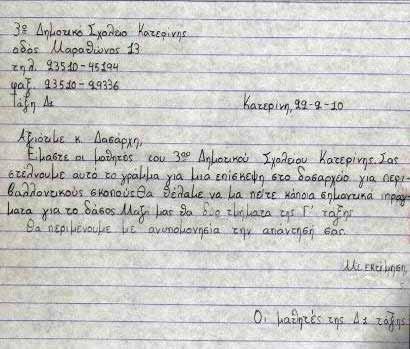 3ο Δημοτικό Σχολείο Κατερίνης
οδός Μαραθώνος 13
τηλ. 23510-45194
φαξ. 23510-29336
Τάξη Δ1
Κατερίνη, 22-2-10
Αξιότιμε κ. Δασάρχη,
Είμαστε οι μαθητές του 3ου Δημοτικού Σχολείου Κατερίνης. Σας
στέλνουμε αυτό το γράμμα για μια επίσκεψη στο δασαρχείο για περι-
βαλλοντικούς σκοπούς. Θα θέλαμε να μα πείτε κάποια σημαντικά πράγ-
ματα για το δάσος. Μαζί μας θα δυο τμήματα της Γ' τάξης
Θα περιμένουμε με ανυπομονησία την απάντησή σας.
Με εκτίμηση
Οι μαθητές της Δ1 τάξης